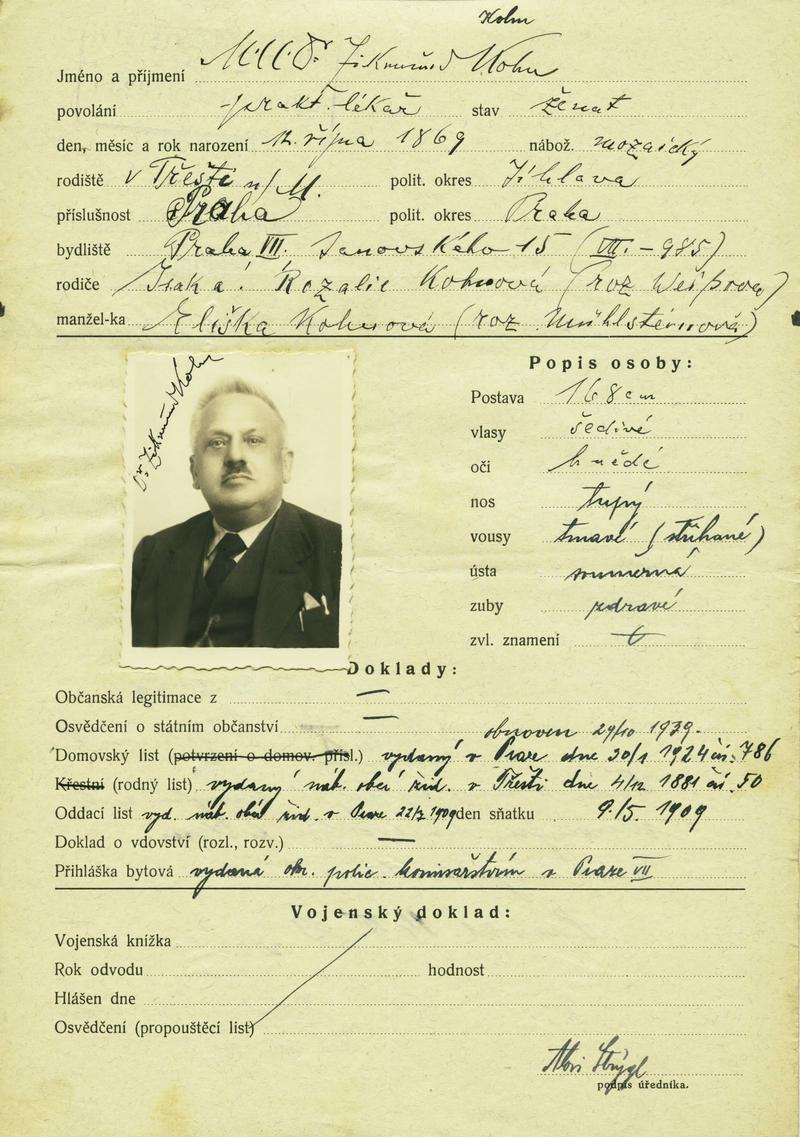 Kohn
Jméno a příjmení MUDr Zikmund Kohn
povolání prakt. lékař stav ženat
den, měsíc a rok narození 12. října 1869 nábož. mozaický
rodiště v Třešti n/M. polit. okres Jihlava
příslušnost Praha polit. okres Praha
bydliště Praha VII. Janovského 15 (VII. – 985)
rodiče Isak a Rozalie Kohnová (roz
manžel-ka Eliška Kohnová (roz. Mühlsteinová)
Popis osoby:
Dr. Zikmund Kohn
Postava 168 cm
vlasy šedivé
oči hnědé
nos tupý
vousy tmavé (stříhané)
ústa souměrná
zuby zdravé
zvl. znamení
Doklady:
Občanská legitimace z —
Osvědčení o státním občanství —
obnoven 29/10 1939.
Domovský list (potvrzení o domov. přísl.) vydaný v Praze dne 30/1 1924 čís. 786
Křestní (rodný list) vydaný náb. obcí žid. v Třešti dne 4/12 1881 čís. 50
Oddací list vyd. náb. obcí žid. v Praze 22/2 1909 den sňatku 9./5. 1909
Doklad o vdovství (rozl., rozv.) —
Přihláška bytová vydaná okr. polic. komisařstvím v Praze VII
Vojenský doklad:
Vojenská knížka
Rok odvodu hodnost
Hlášen dne
Osvědčení (propouštěcí list)
podpis úředníka.